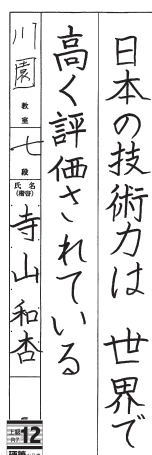 日本の技術力は 世界で
高く評価されている
川園 教室 七 段 氏名(楷行) 寺山和杏
12